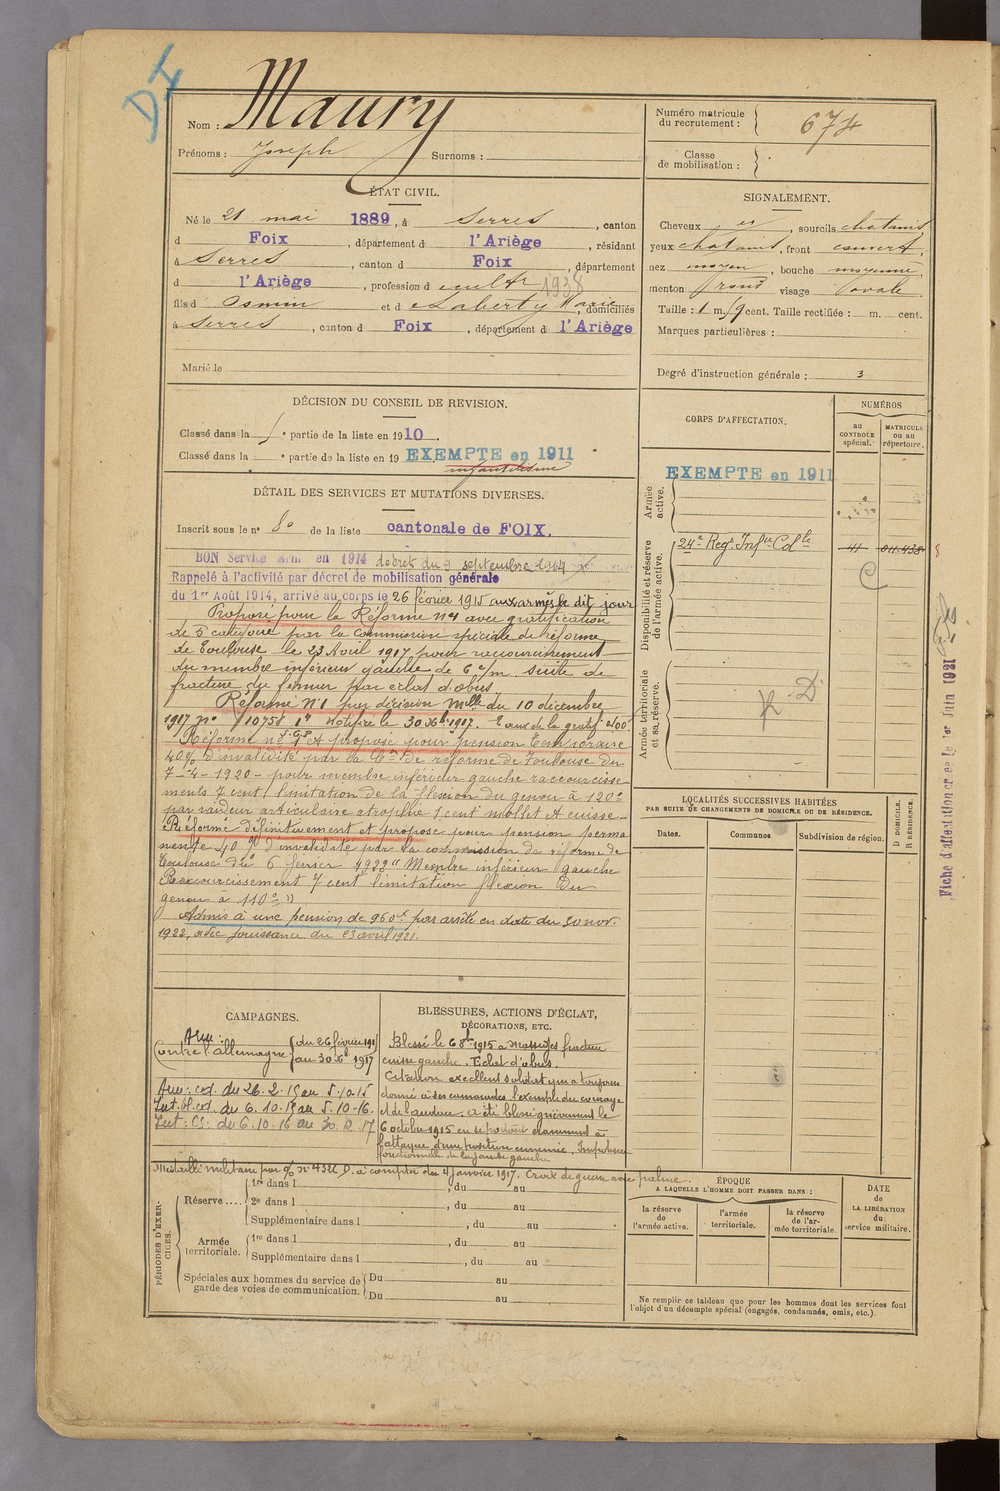 DI
Nom : Maury
Prénoms : Joseph Surnoms :
Numéro matricule du recrutement : 674
Classe de mobilisation :
ÉTAT CIVIL.
Né le 21 mai 1889, à Serres, canton
d Foix, département d l'Ariège, résidant
à Serres, canton d Foix, département
d l'Ariège, profession d cult^r 1938
fils d Osmin et d Laberty Marie, domiciliés
à Serres, canton d Foix, département d l'Ariège
Marié le
SIGNALEMENT.
Cheveux id, sourcils chatains
yeux chatains, front couvert,
nez moyen, bouche moyenne,
menton rond visage ovale
Taille : 1 m. 59 cent. Taille rectifiée : m. cent.
Marques particulières :
Degré d'instruction générale : 3
DÉCISION DU CONSEIL DE REVISION.
Classé dans la 5e partie de la liste en 1910.
Classé dans la e partie de la liste en 19 EXEMPTE en 1911
infantilisme
DÉTAIL DES SERVICES ET MUTATIONS DIVERSES.
Inscrit sous le n° 80 de la liste cantonale de FOIX.
BON Service Arm en 1914 décret du 9 septembre 1914
Rappelé à l'activité par décret de mobilisation générale
du 1er Août 1914, arrivé au corps le 26 février 1915 aux armées le dit jour
Proposé pour la Réforme n°1 avec gratification
de 5e catégorie par la commission spéciale de réforme
de Toulouse le 23 Avril 1917 pour raccourcissement
du membre inférieur gauche de 6 c/m suite de
fracture du fémur par éclat d'obus
Réformé N°1 par décision Mlle du 10 décembre
1917 N° 110758 1 Notifiée le 30 Xbre 1917. Taux de la gratif.
Réformé n°1 et proposé pour pension temporaire
40% d'invalidité par la Con de réforme de Toulouse du
7-4-1920 - pour membre inférieur gauche raccourcisse-
ments 7 cent, limitation de la flexion du genou à 120°
par raideur articulaire atrophie 1 cent mollet et cuisse-
Réformé définitivement et proposé pour pension perma
nente 40% d'invalidité par la commission de réforme de
Toulouse du 6 février 1922 " Membre inférieur gauche
Raccourcissement 7 cent limitation flexion du
genou à 110° "
Admis à une pension de 960f par arrêté en date du 30 nov.
1922, avec jouissance du 23 avril 1921.
CORPS D'AFFECTATION.
NUMÉROS
au CONTROLE spécial.
MATRICULE ou au répertoire.
Armée active.
EXEMPTE en 1911
Disponibilité et réserve de l'armée active.
24e Regt Infie Colle
011.438
8
C
Armée territoriale et sa réserve.
R. D
LOCALITÉS SUCCESSIVES HABITÉES
PAR SUITE DE CHANGEMENTS DE DOMICILE OU DE RÉSIDENCE.
Dates. Communes Subdivision de région.
D DOMICILE.
R RÉSIDENCE.
CAMPAGNES.
Contre l'Allemagne du 26 février 191
au 30 Xbre 1917
Aux: cd. du 26.2.15 au 5.10.15
Int. bl. cd. du 6.10.15 au 5.10-16.
Int: CS: du 6.10.16 au 30.12.17
BLESSURES, ACTIONS D'ÉCLAT,
DÉCORATIONS, ETC.
Blessé le 6 8bre 1915 à Massiges fracture
cuisse gauche. Eclat d'obus.
Citation excellent soldat qui a toujours
donné à ses camarades l'exemple du courage
et de l'audace. a été blessé grièvement le
6 octobre 1915 en se portant à
l'attaque d'une position ennemie. Impotence
fonctionnelle de la jambe gauche
Médaille militaire par D. à compter du 4 janvier 1917. Croix de guerre avec palme.
PÉRIODES D'EXERCICES.
Réserve ....
1re dans l , du au
2e dans l , du au
Supplémentaire dans l , du au
Armée territoriale.
1re dans l , du au
Supplémentaire dans l , du au
Spéciales aux hommes du service de garde des voies de communication.
Du au
Du au
ÉPOQUE
A LAQUELLE L'HOMME DOIT PASSER DANS :
la réserve de l'armée active.
l'armée territoriale.
la réserve de l'armée territoriale.
DATE de LA LIBÉRATION du service militaire.
Ne remplir ce tableau que pour les hommes dont les services font
l'objet d'un décompte spécial (engagés, condamnés, omis, etc.).
Fiche d'affection créée le 1er Juin 1921